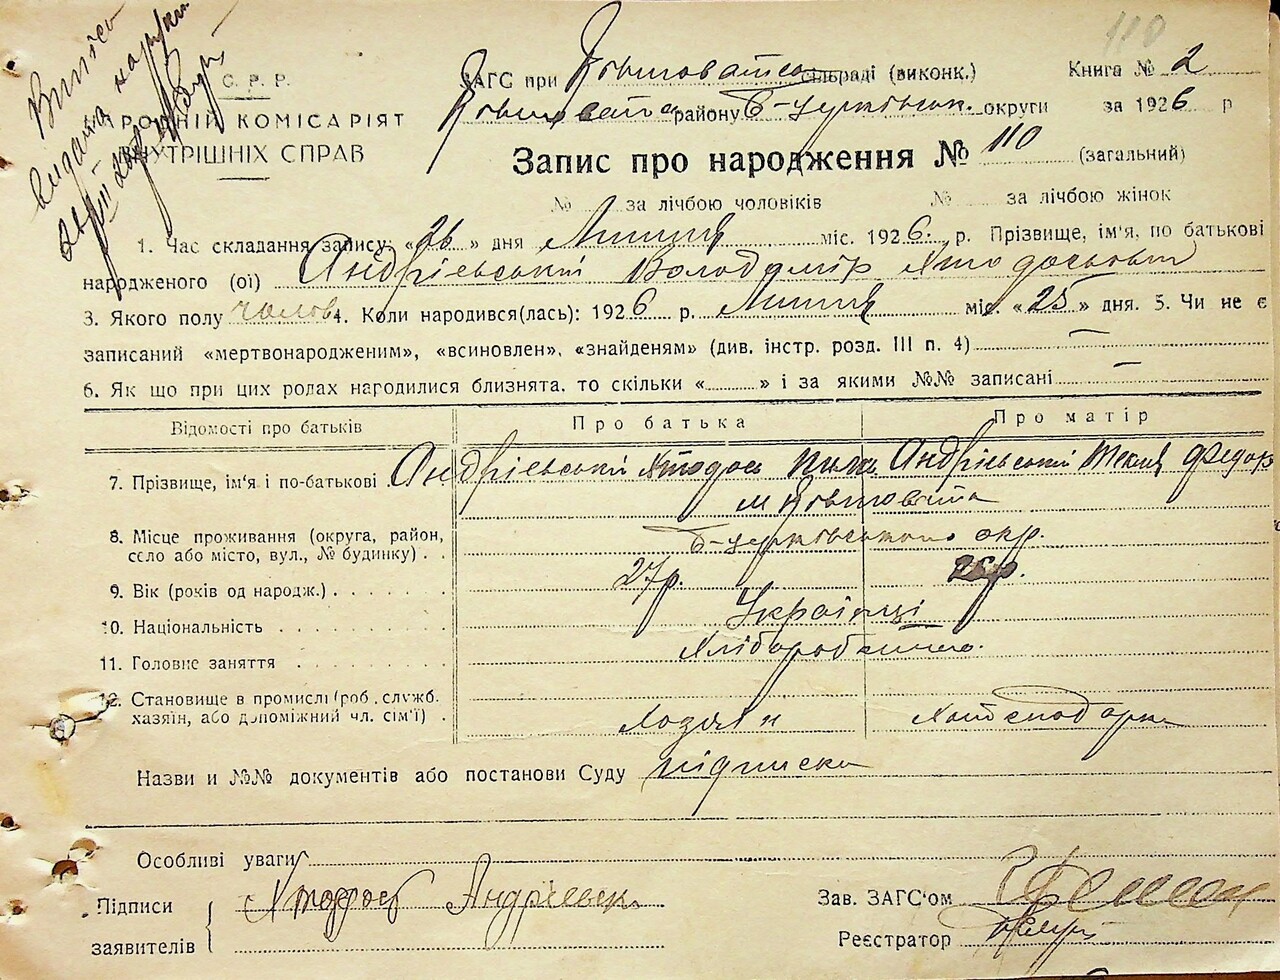 110
С. Р. Р.
НАРОДНІЙ КОМІСАРІЯТ
ВНУТРІШНІХ СПРАВ
ЗАГС при сільраді (виконк.) Книга № 2
району Б-Церківськ. округи за 1926 р
Запис про народження № 110 (загальний)
№ за лічбою чоловіків № за лічбою жінок
1. Час складання запису: «26» дня Липця міс. 1926. р. Прізвище, ім'я, по батькові
народженого (ої) Андріевський Володимір Хтодосьович
3. Якого полу чолов. 4. Коли народився(лась): 1926 р. Липця міс. «25» дня. 5. Чи не є
записаний «мертвонародженим», «всиновлен», «знайденям» (див. інстр. розд. III п. 4) —
6. Як що при цих родах народилися близнята, то скільки « » і за якими №№ записані —
Відомості про батьків Про батька Про матір
7. Прізвище, ім'я і по-батькові Андріевський Хтодось Андріевський Текля Федор
8. Місце проживання (округа, район, село або місто, вул., № будинку) м
Б-Церківського окр.
9. Вік (років од народж.) 27р.
10. Національність Українці
11. Головне заняття Хліборобство.
12. Становище в промислі (роб., служб. хазяїн, або допоміжний чл. сім'ї) Хозяін
Назви и №№ документів або постанови Суду підписка
Особливі уваги
Підписи заявителів Хтодось Андріевськ
Зав. ЗАГС'ом
Реєстратор